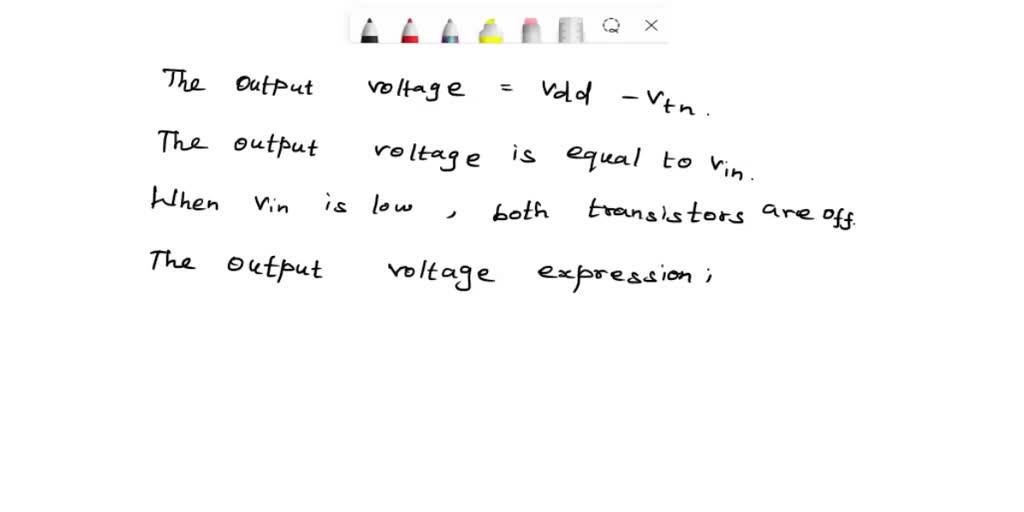 The output voltage = Vdd - Vtn.
The output voltage is equal to Vin.
When Vin is low, both transistors are off.
The output voltage expression;